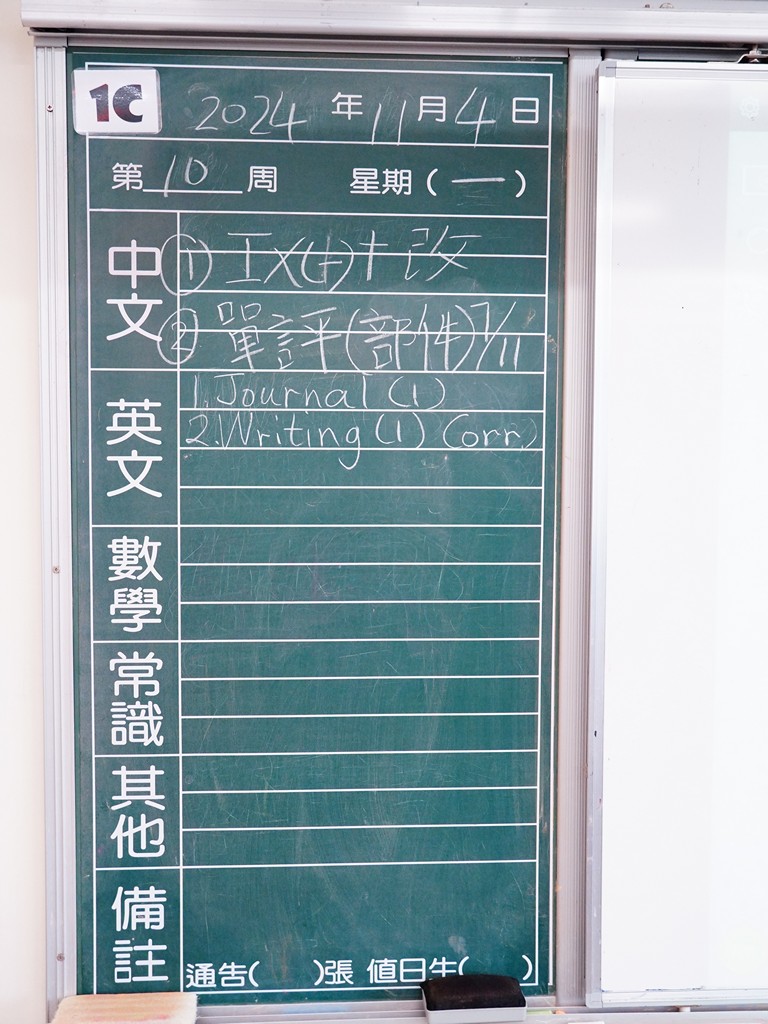 1C
2024 年 11 月 4 日
第 10 周 星期 ( 一 )
中文
① 工X(上)+改
② 單評(部件)7/11
英文
1. Journal (1)
2. Writing (1) Corr.)
數學
常識
其他
備註
通告( )張 值日生( )